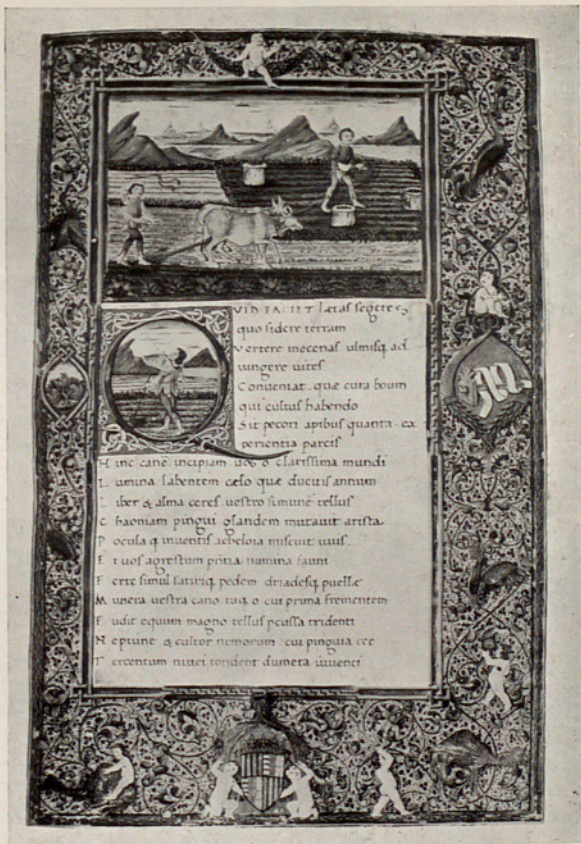 QVID FACIET lætas segetes
quo sidere terram
Vertere mecenas ulmisq ad
iungere uites
Conueniat. quæ cura boum
qui cultus habendo
Sit pecori apibus quanta ex
perientia parcis
Hinc canē incipiam uos o clarissima mundi
Lumina labentem cælo quæ ducitis annum
Liber & alma ceres uestro si munē tellus
Chaoniam pingui glandem mutauit arista
Pocula q inuentis acheloia miscuit uuis.
Et uos agrestum pntia numina fauni
Ferte simul fauniq pedem driadesq puellæ
Munera uestra cano tuq o cui prima frementem
Fudit equum magno tellus pcussa tridenti
Neptune & cultor nemorum cui pinguia cee
Tercentum niuei tondent dumeta iuuenci